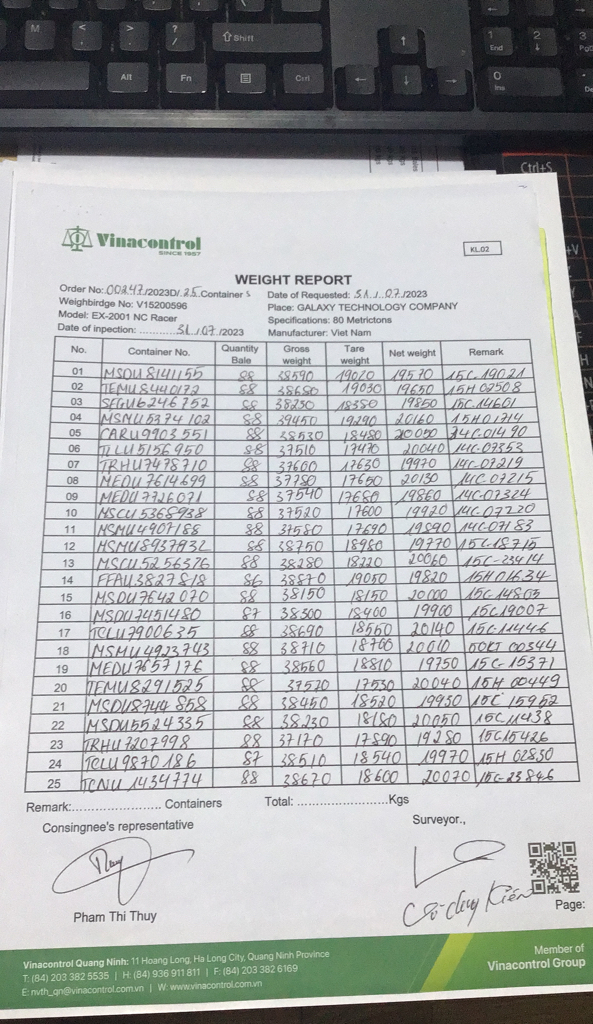 M
<
,
>
.
?
/
⇧Shift
Alt
Fn
Ctrl
↑
←
↓
→
1
End
2
↓
3
0
Ins
Ctrl+S
+V
Vinacontrol
SINCE 1957
KL.02
WEIGHT REPORT
Order No: 00247/2023D/.25.Containers Date of Requested: 31/07/2023
Weighbirdge No: V15200596 Place: GALAXY TECHNOLOGY COMPANY
Model: EX-2001 NC Racer Specifications: 80 Metrictons
Date of inpection: ............31/07/2023 Manufacturer: Viet Nam
No. Container No. Quantity Bale Gross weight Tare weight Net weight Remark
01 MSDU8141155 88 38590 19020 19570 15C-19021
02 TEMU8440172 88 38680 19030 19650 15H 02508
03 SEGU6246752 88 38230 18380 19850 15C-14601
04 MSNU5374102 88 39450 19290 20160 15H01714
05 CARU9903551 88 38530 18480 20050 14C-01490
06 TLLU5156950 88 37510 17470 20040 14C-07353
07 TRHU7478710 88 37600 17630 19970 14C-07219
08 MEDU7614699 88 37780 17650 20130 14C-07215
09 MEDU7726071 88 37540 17680 19860 14C-07324
10 MSCU5368938 88 37520 17600 19920 14C-07220
11 MSMU4907188 88 37580 17690 19890 14C-07183
12 88 38750 18980 19770 15C-18715
13 MSCU5256376 88 38280 18220 20060 15C-23414
14 FFAU3827818 86 38870 19050 19820 15H01634
15 MSDU7642070 88 38150 18150 20000 15C-14803
16 MSDU7451480 87 38300 18400 19900 15C19007
17 TCLU7900635 88 38690 18550 20140 15C-11446
18 MSMU4923743 88 38710 18700 20010 00KT 00344
19 MEDU7657176 88 38560 18810 19750 15C-15371
20 TEMU8291525 88 37570 17530 20040 15H 00449
21 MSDU8744858 88 38450 18520 19930 15C 15952
22 MSDU5524335 88 38230 18180 20050 15C11438
23 TRHU7207998 88 37170 17890 19280 15C15426
24 TCLU9870186 87 38510 18540 19970 15H 02830
25 TCNU 1434774 88 38670 18600 20070 15C-23846
Remark:...................... Containers Total: ......................Kgs
Consingnee's representative Surveyor.,
Pham Thi Thuy
Page:
Vinacontrol Quang Ninh: 11 Hoang Long, Ha Long City, Quang Ninh Province
T: (84) 203 382 5535 | H: (84) 936 911 811 | F: (84) 203 382 6169
E: nvth_qn@vinacontrol.com.vn | W: www.vinacontrol.com.vn
Member of
Vinacontrol Group